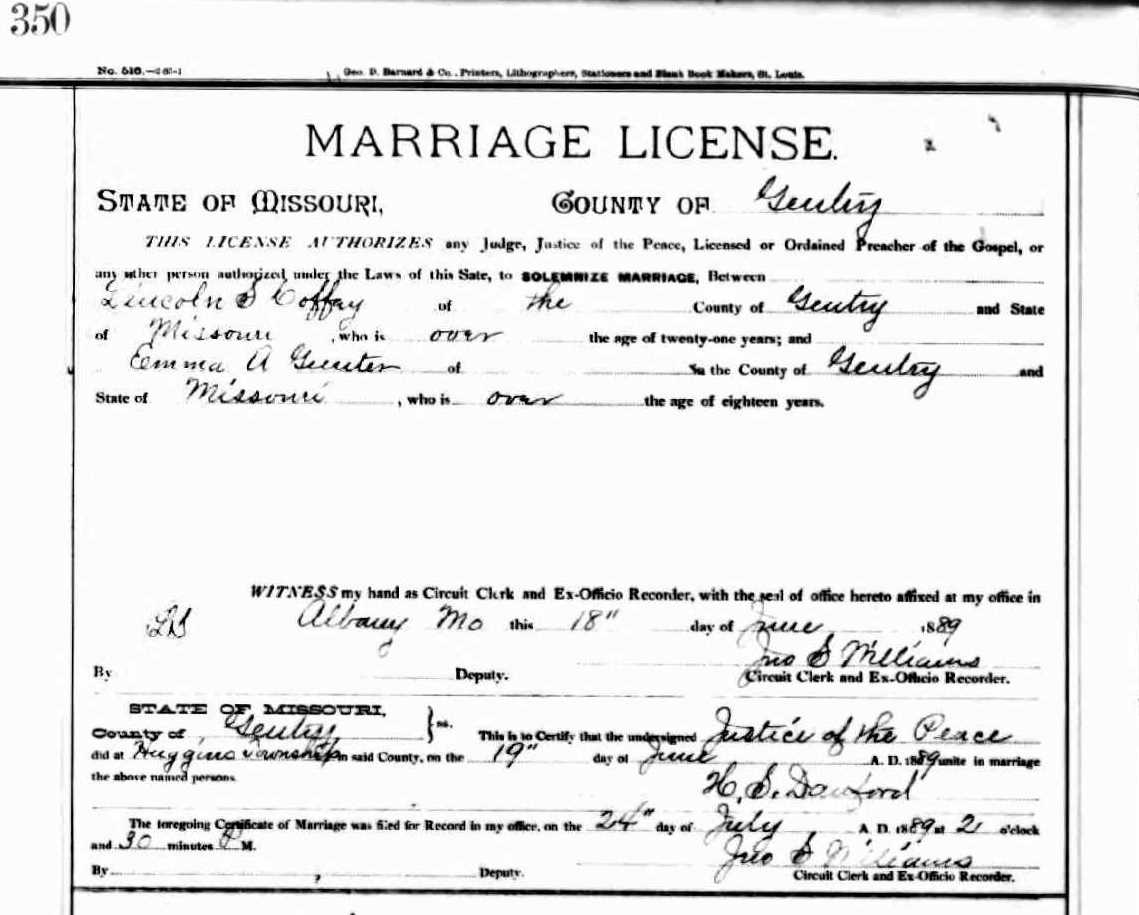 350
No. 516.
Geo. D. Barnard & Co., Printers, Lithographers, Stationers and Blank Book Makers, St. Louis.
MARRIAGE LICENSE.
STATE OF MISSOURI, COUNTY OF Gentry
THIS LICENSE AUTHORIZES any Judge, Justice of the Peace, Licensed or Ordained Preacher of the Gospel, or
any other person authorized under the Laws of this Sate, to SOLEMNIZE MARRIAGE, Between
Lincoln S Coffay of the County of Gentry and State
of Missouri, who is over the age of twenty-one years; and
Emma A Gunter of the County of Gentry and
State of Missouri, who is over the age of eighteen years.
WITNESS my hand as Circuit Clerk and Ex-Officio Recorder, with the seal of office hereto affixed at my office in
LS Albany Mo this 18" day of June 1889
Jno S Williams
By Deputy. Circuit Clerk and Ex-Officio Recorder.
STATE OF MISSOURI,
County of Gentry } ss. This is to Certify that the undersigned Justice of the Peace
did at Huggins Township in said County, on the 19" day of June A. D. 1889 unite in marriage
the above named persons.
H. S. Danford
The foregoing Certificate of Marriage was filed for Record in my office, on the 24" day of July A. D. 1889 at 2 o'clock
and 30 minutes P M.
Jno S Williams
By Deputy. Circuit Clerk and Ex-Officio Recorder.